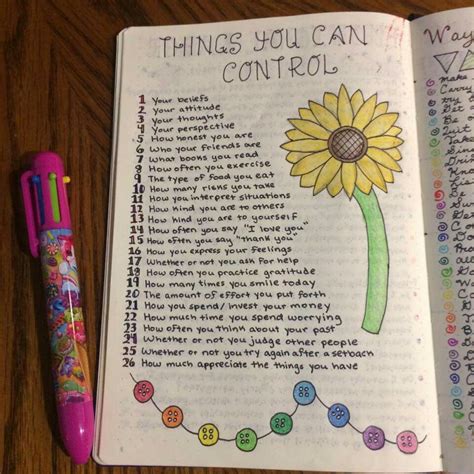 THINGS YOU CAN
CONTROL
1 Your beliefs
2 Your attitude
3 Your thoughts
4 Your perspective
5 How honest you are
6 Who your friends are
7 What books you read
8 How often you exercise
9 The type of food you eat
10 How many risks you take
11 How you interpret situations
12 How kind you are to others
13 How kind you are to yourself
14 How often you say "I love you"
15 How often you say "thank you"
16 How you express your feelings
17 Whether or not you ask for help
18 How often you practice gratitude
19 How many times you smile today
20 The amount of effort you put forth
21 How you spend/invest your money
22 How much time you spend worrying
23 How often you think about your past
24 Whether or not you judge other people
25 Whether or not you try again after a setback
26 How much appreciate the things you have
Way
make
Carry
try
Be